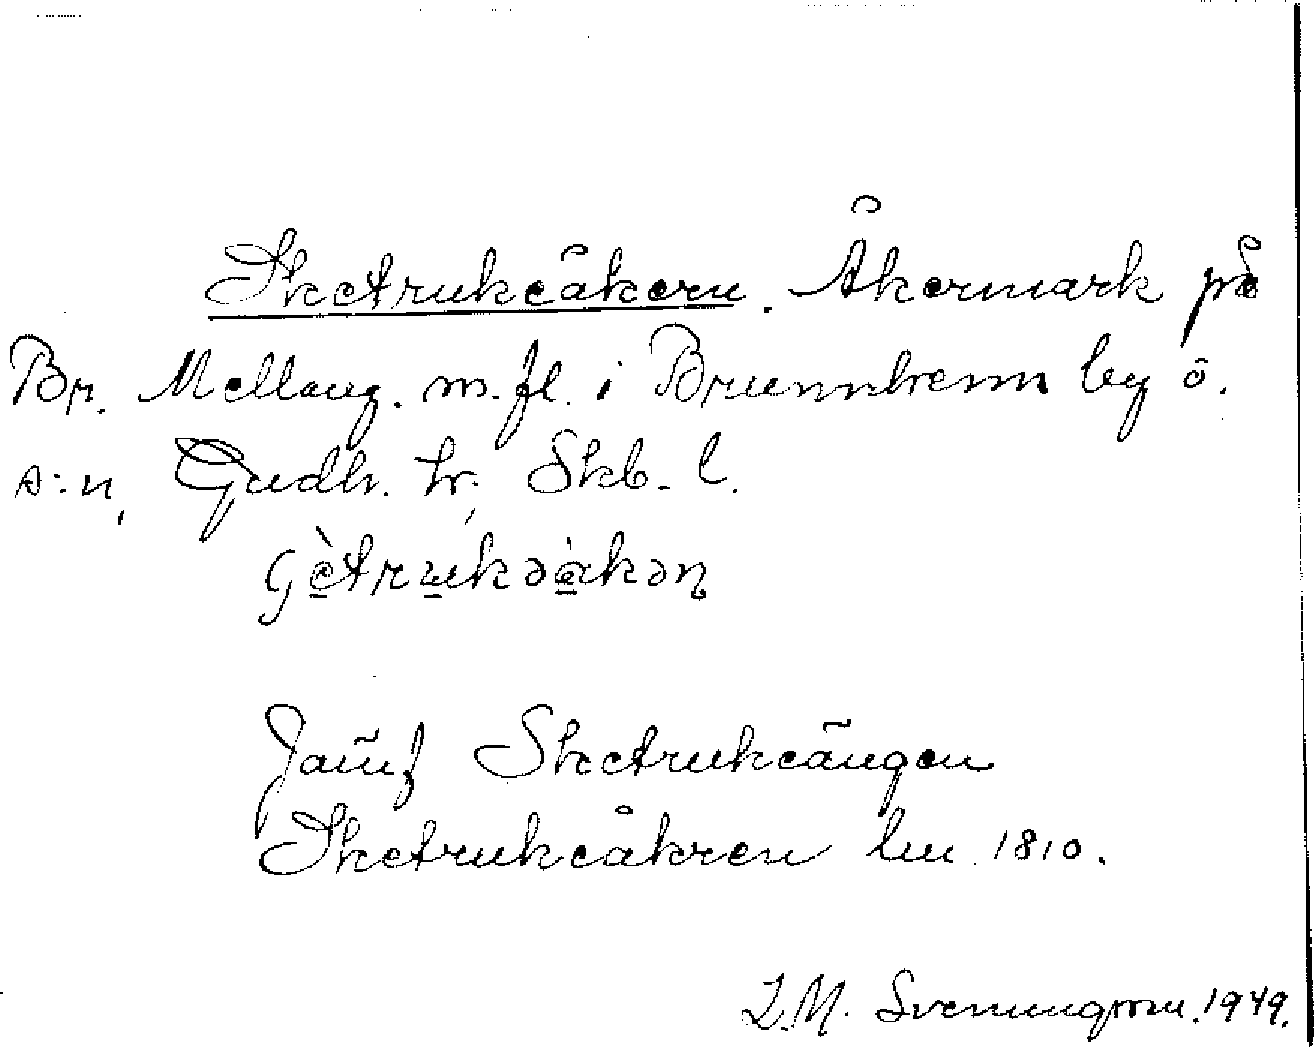 Sketrukeåkern. Åkermark på
Br. Mellang. m.fl. i Brunnhem by o.
s:n, Gudh. hr, Skb. l.
Jämf Sketrukeängen
Sketrukeåkren lm 1810.
L.M. Svenungsson. 1949.